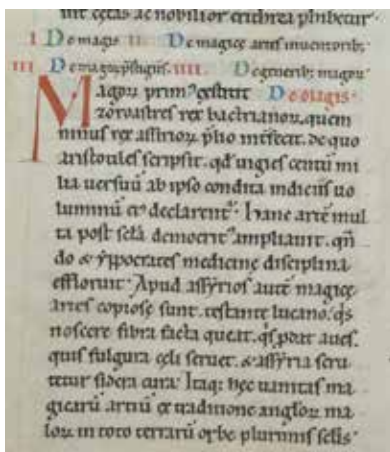 int cętas ac nobilior erithrea phibetur.
I De magis II. De magicę artis inuentorib;
III De magicę p̄stigiis. IIII. De generib; magoꝝ
Magoꝝ primꝰ extitit De Magis.
zoroastres rex bactrianoꝝ, quem
ninus rex assirioꝝ p̄lio intſecit. de quo
aristotiles scripsit. qđ uigies centū mi
lia uersuū ab ipso condita indiciis uo
luminū eiꝰ declarentᷣ. Hanc artē mul
ta post sčla democritꝰ ampliauit. qn̄
do & ẏppocrates medicine disciplina
effloruit. Apud assyrios autē magicę
artes copiosę sunt. testante lucano. q̇s
noscere fibra facta queat. q̇s pdat aues.
quis fulgura cęli seruet. & assyria scru
tetur sidera cura. Itaq; hęc uanitas ma
gicarū artiū ex traditione angłoꝝ ma
loꝝ in toto terrarū orbe plurimis sčlis